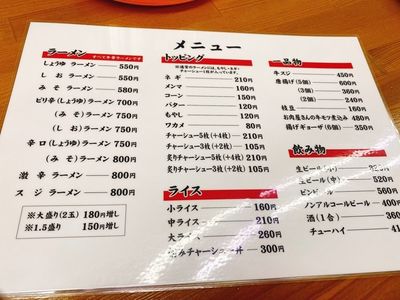 メニュー
ラーメン
すべて手習ラーメンです
しょうゆ ラーメン 550円
しお ラーメン 550円
みそ ラーメン 580円
ピリ辛(しょうゆ)ラーメン 700円
(みそ)ラーメン 750円
(しお)ラーメン 750円
辛ロ(しょうゆ)ラーメン 750円
(みそ)ラーメン 800円
激辛 ラーメン 800円
スジ ラーメン 800円
※大盛り(2玉) 180円増し
※1.5盛り 150円増し
トッピング
※通常のラーメンには、もやし・ネギ
チャーシュー1枚が入っています。
ネギ 210円
メンマ 160円
コーン 150円
バター 120円
もやし 120円
ワカメ 80円
チャーシュー5枚(+4枚) 210円
チャーシュー3枚(+2枚) 105円
炙りチャーシュー5枚(+4枚) 210円
炙りチャーシュー3枚(+2枚) 105円
ライス
小ライス 160円
中ライス 210円
大ライス 260円
チャーシュー丼 300円
一品物
牛スジ 450円
唐揚げ(5個) 600円
(3個) 360円
(2個) 240円
枝豆
お肉屋さんの牛モツ煮込み 480円
揚げギョーザ(6個) 350円
飲み物
生ビール(中) 520円
ビンビール 560円
ノンアルコールビール 400円
酒(1合)
チューハイ